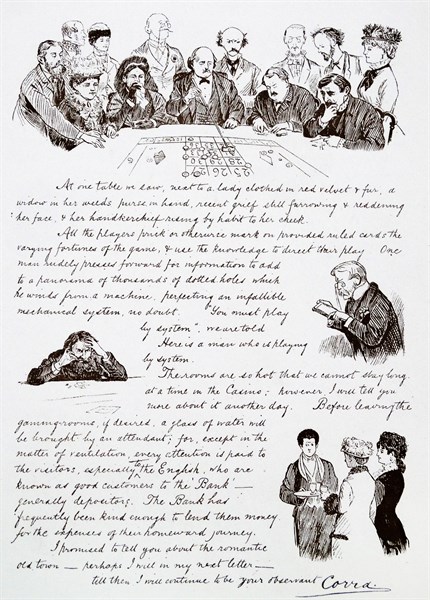 At one table we saw, next to a lady clothed in red velvet & fur, a
widow in her weeds purse in hand, recent grief still furrowing & reddening
her face, & her handkerchief rising by habit to her cheek.
All the players prick or otherwise mark on provided ruled cards the
varying fortunes of the game, & use the knowledge to direct their play. One
man rudely presses forward for information to add
to a panorama of thousands of dotted holes which
he winds from a machine, perfecting an infallible
mechanical system, no doubt. "You must play
by system", we are told
Here is a man who is playing
by system.
The rooms are so hot that we cannot stay long
at a time in the Casino; however I will tell you
more about it another day. Before leaving the
gaming-rooms, if desired, a glass of water will
be brought by an attendant; for, except in the
matter of ventilation, every attention is paid to
the visitors, especially to the English, who are
known as good customers to the Bank —
generally depositors. The Bank has
frequently been kind enough to lend them money
for the expenses of their homeward journey.
I promised to tell you about the romantic
old town — perhaps I will in my next letter —
till then I will continue to be your observant Corra.